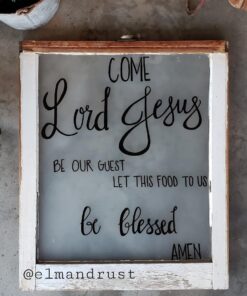 COME
Lord Jesus
BE OUR GUEST
LET THIS FOOD TO US
be blessed
AMEN
@elmandrust